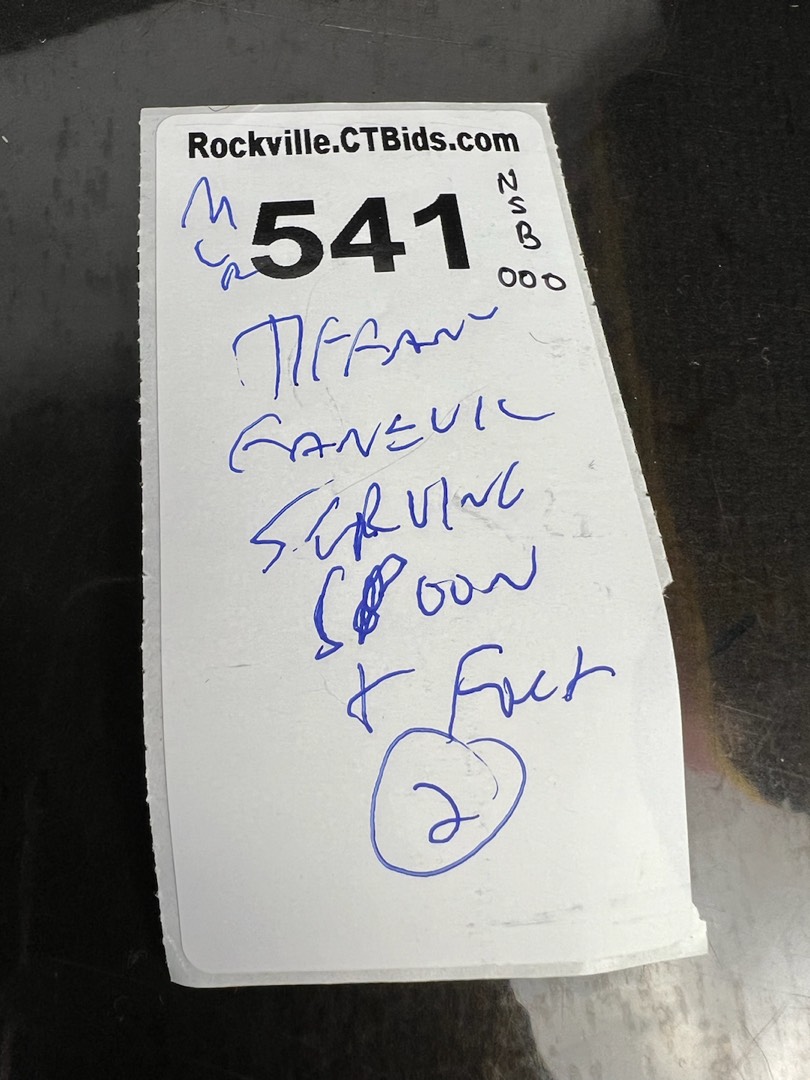 Rockville.CTBids.com
541
N
S
B
000
TIFFANY
FANEUIL
SERVING
SPOON
+ FORK
2